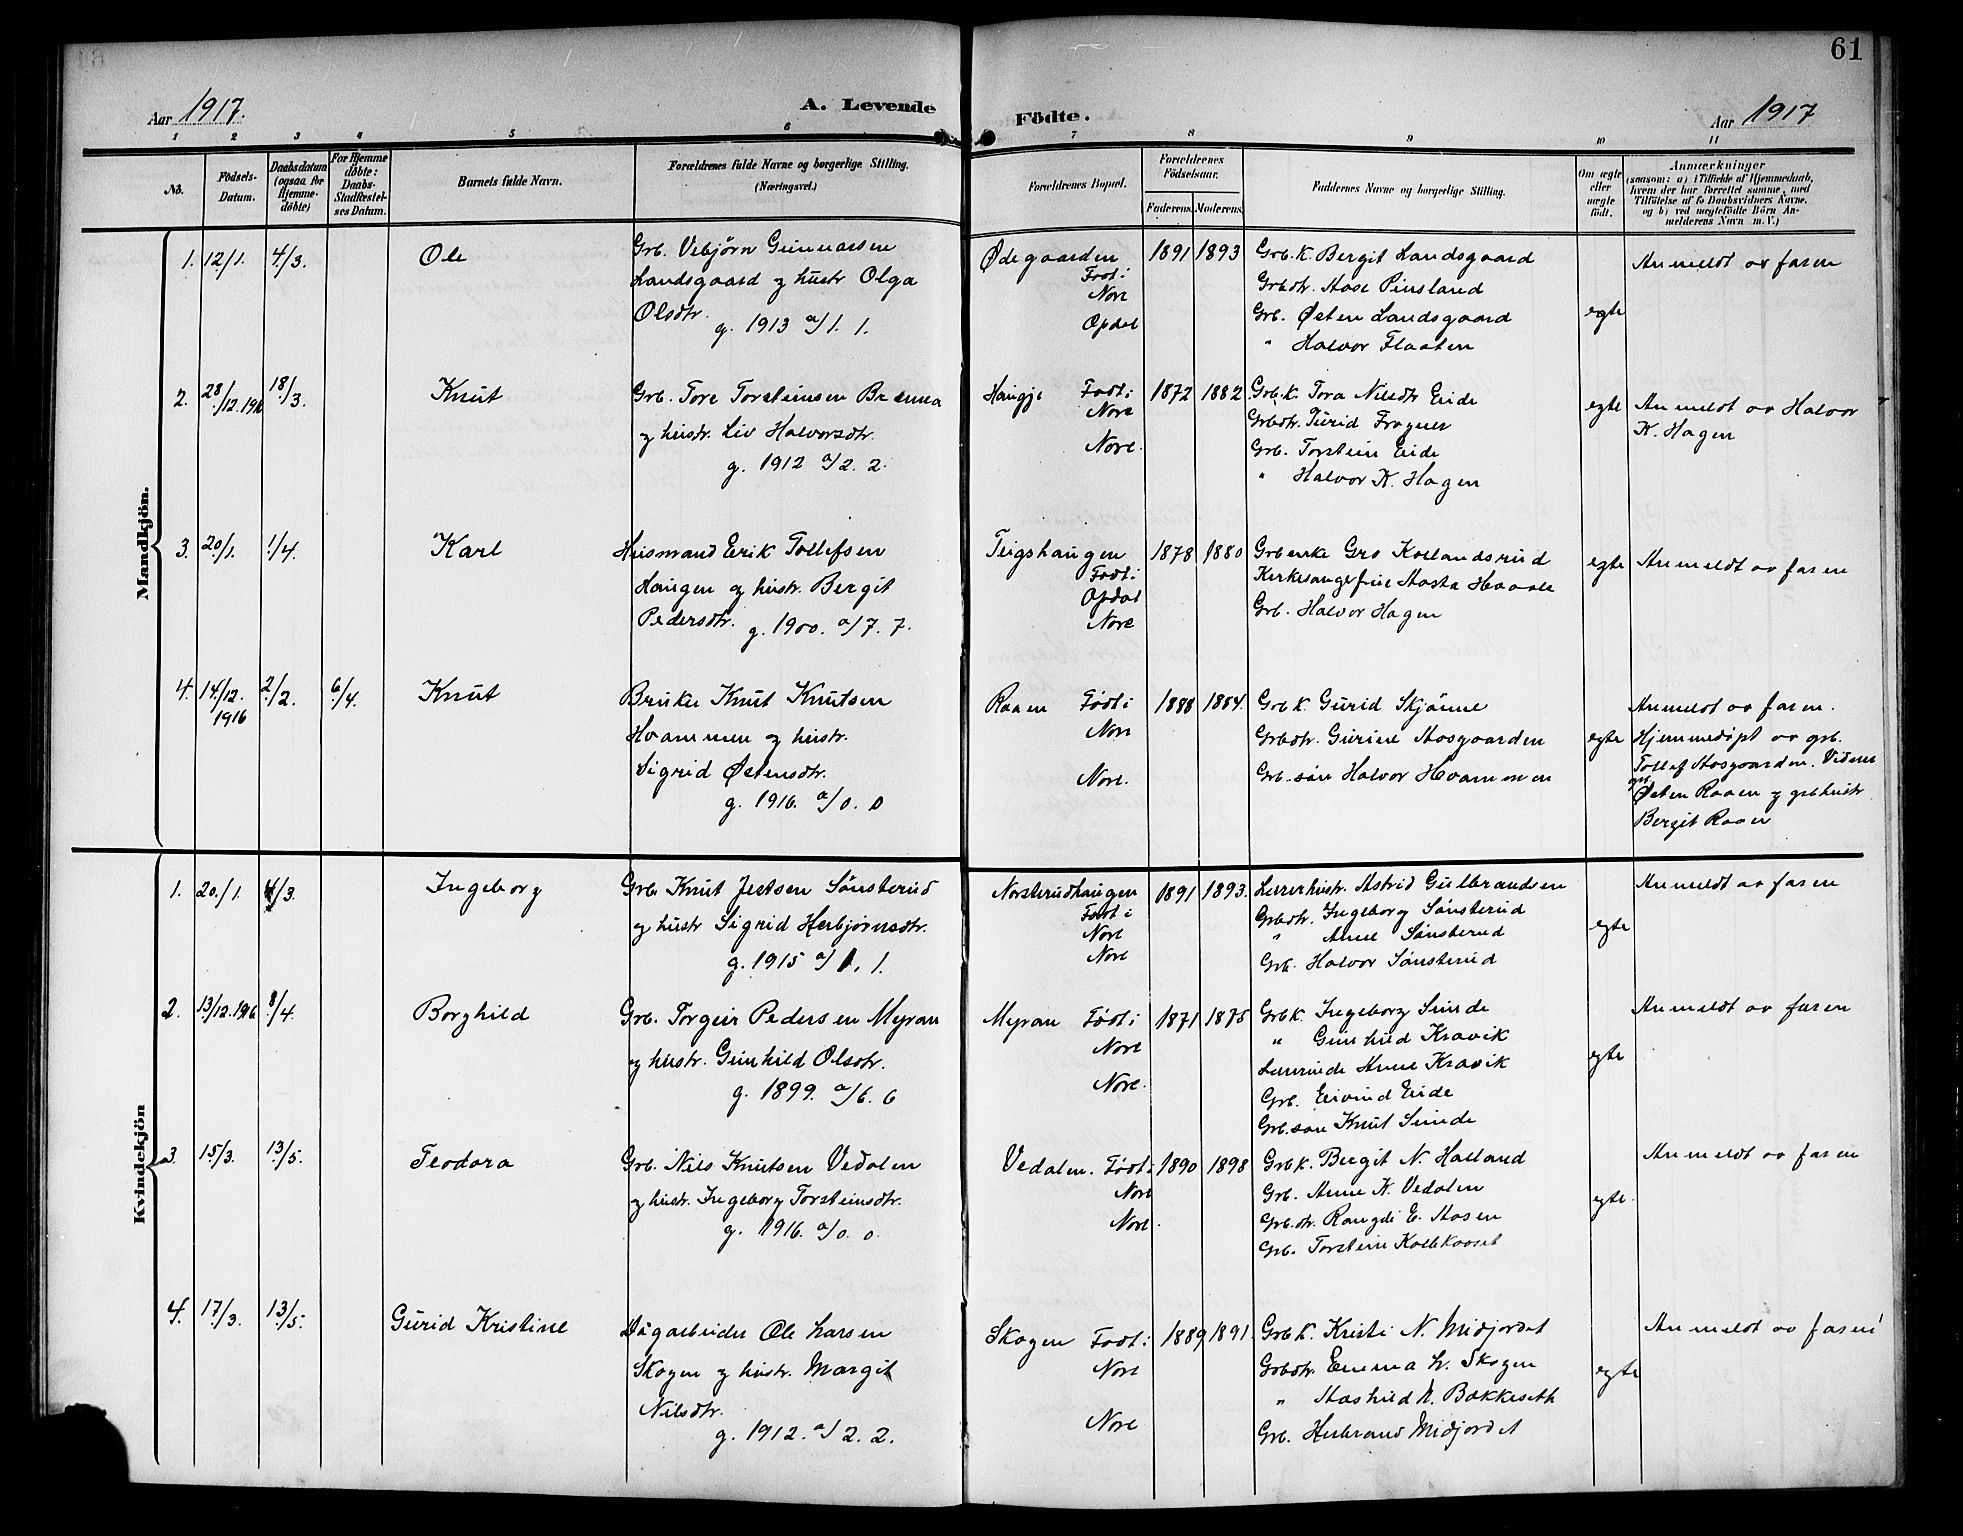 61
Aar 1917.
A. Levende
Födte.
Aar 1917
1 2 3 4 5 6 7 8 9 10 11
No.
Födsels-
Datum.
Daabsdatum
(ogsaa for
Hjemme-
döbte)
For Hjemme
döbte:
Daabs-
Stadfæstel-
ses Datum.
Barnets fulde Navn.
Forældrenes fulde Navne og borgerlige Stilling.
(Næringsvei.)
Forældrenes Bopæl.
Forældrenes
Födselsaar.
Faderens. Moderens.
Faddernes Navne og borgerlige Stilling.
Om ægte
eller
uægte
födt.
Anmærkninger
(saasom: a) i Tilfælde af Hjemmedaab,
hvem der har forrettet samme, med
Tilföielse af to Daabsvidners Navne,
og b) ved uægtefödte Börn An-
melderens Navn m. V.)
Mandkjön.
1. 12/1. 4/3. Ole
Grb. Vebjörn Gunnarsen
Landsgaard og hustr Olga
Olsdtr.
g. 1913 a/1. 1.
Ødegaarden
Født i
Nore
Opdal
1891 1893
Grb.k. Bergit Landsgaard
Grbdtr. Aase Pinsland
Grb. Østen Landsgaard
" Halvor Flaaten
egte
Anmeldt av faren
2. 28/12. 1916 18/3. Knut
Grb. Tore Torsteinsen
og hustr. Liv Halvorsdtr.
g. 1912 a/2. 2.
Haugje Født i
Nore
Nore.
1872 1882
Grb.k. Tora Nilsdtr Eide
Grbdtr. Turid Fragner
Grb. Torstein Eide
" Halvor K. Hagen
egte
Anmeldt av Halvor
K. Hagen
3. 20/1. 1/4. Karl
Husmand Erik Tollefsen
Haugen og hustr. Bergit
Pedersdtr. g. 1900. a/7. 7.
Teigshaugen
Født i
Opdal
Nore
1878 1880
Grbenke Gro
Kirkesangerfrue Aasta
Grb. Halvor Hagen
egte
Anmeldt av faren
4. 14/12. 1916 2/2. 6/4. Knut
Bruker Knut Knutsen
Hvammen og hustr.
Sigrid Østensdtr.
g. 1916. a/0. 0
Raaen Født i
Nore
Nore.
1888 1884.
Grb k. Gurid Skjönne
Grbdtr. Gurine Aasgaarden
Grb. sön Halvor Hvammen
egte
Anmeldt av faren.
Hjemmedöpt av grb.
Tollef Aasgaarden. Vidner
grb. Østen Raaen og grbhustr
Bergit Raaen
Kvindekjön
1. 20./1. 4/3. Ingeborg
Grb Knut Jertsen Sönsterud
og hustr Sigrid Herbjörnsdtr.
g. 1915 a/1. 1.
Norsterudhaugen
Født i
Nore
Nore
1891 1893.
Lærerhustr. Astrid Gulbrandsen
Grbdtr. Ingeborg Sönsterud
" Anne Sönsterud
Grb. Halvor Sönsterud
egte
Anmeldt av faren
2. 13/12. 1916 8/4. Borghild
Grb. Torgeir Pedersen Myran
og hustr. Gunhild Olsdtr.
g. 1899. a/6. 6
Myran Født i
Nore
Nore.
1871 1875
Grb k. Ingeborg Simde
" Gunhild Kravik
Lærerinde Anne Kravik
Grb. Eivind Eide
Grb. sön Knut Simde
egte
Anmeldt av faren
3. 15/3. 13/5. Teodora
Grb. Nils Knutsen Vedalen
og hustr. Ingeborg Torsteinsdtr.
g. 1916. a/0. 0.
Vedalen. Født i
Nore
Nore.
1890 1898
Grb k. Bergit N. Halland
Grb. Anne K. Vedalen
Grb. dtr. Rangdi E. Aasen
Grb. Torstein
egte.
Anmeldt av faren
4. 17/3. 13/5. Gurid Kristine
Dagarbeider Ole Larsen
Skogen og hustr. Margit
Nilsdtr.
g. 1912. a/2. 2.
Skogen Født i
Nore
Nore
1889 1891
Grb k. Kristi N. Midjordet
Grbdtr. Emma L. Skogen
" Aashild N. Bakkeseth
Grb. Herbrand Midjordet
egte
Anmeldt av faren